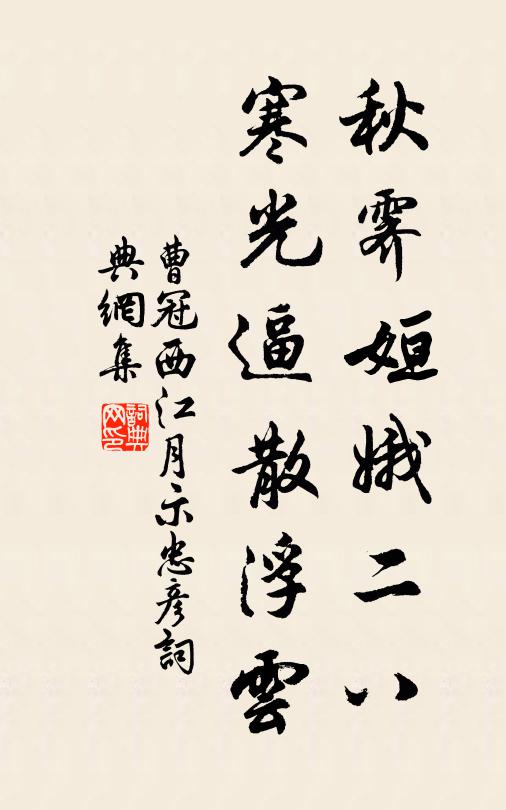 秋霽姮娥二八
寒光逼散浮雲
曹冠西江月示忠彥詞
典網集
詞典网印